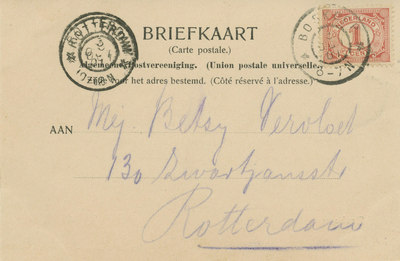 BRIEFKAART
(Carte postale.)
Algemeene Postvereeniging. (Union postale universelle)
Zijde voor het adres bestemd. (Côté réservé à l'adresse.)
ROTTERDAM
NEDERLAND
1
AAN
Mej Betsy Vervloet
130 Zwartjansstr
Rotterdam